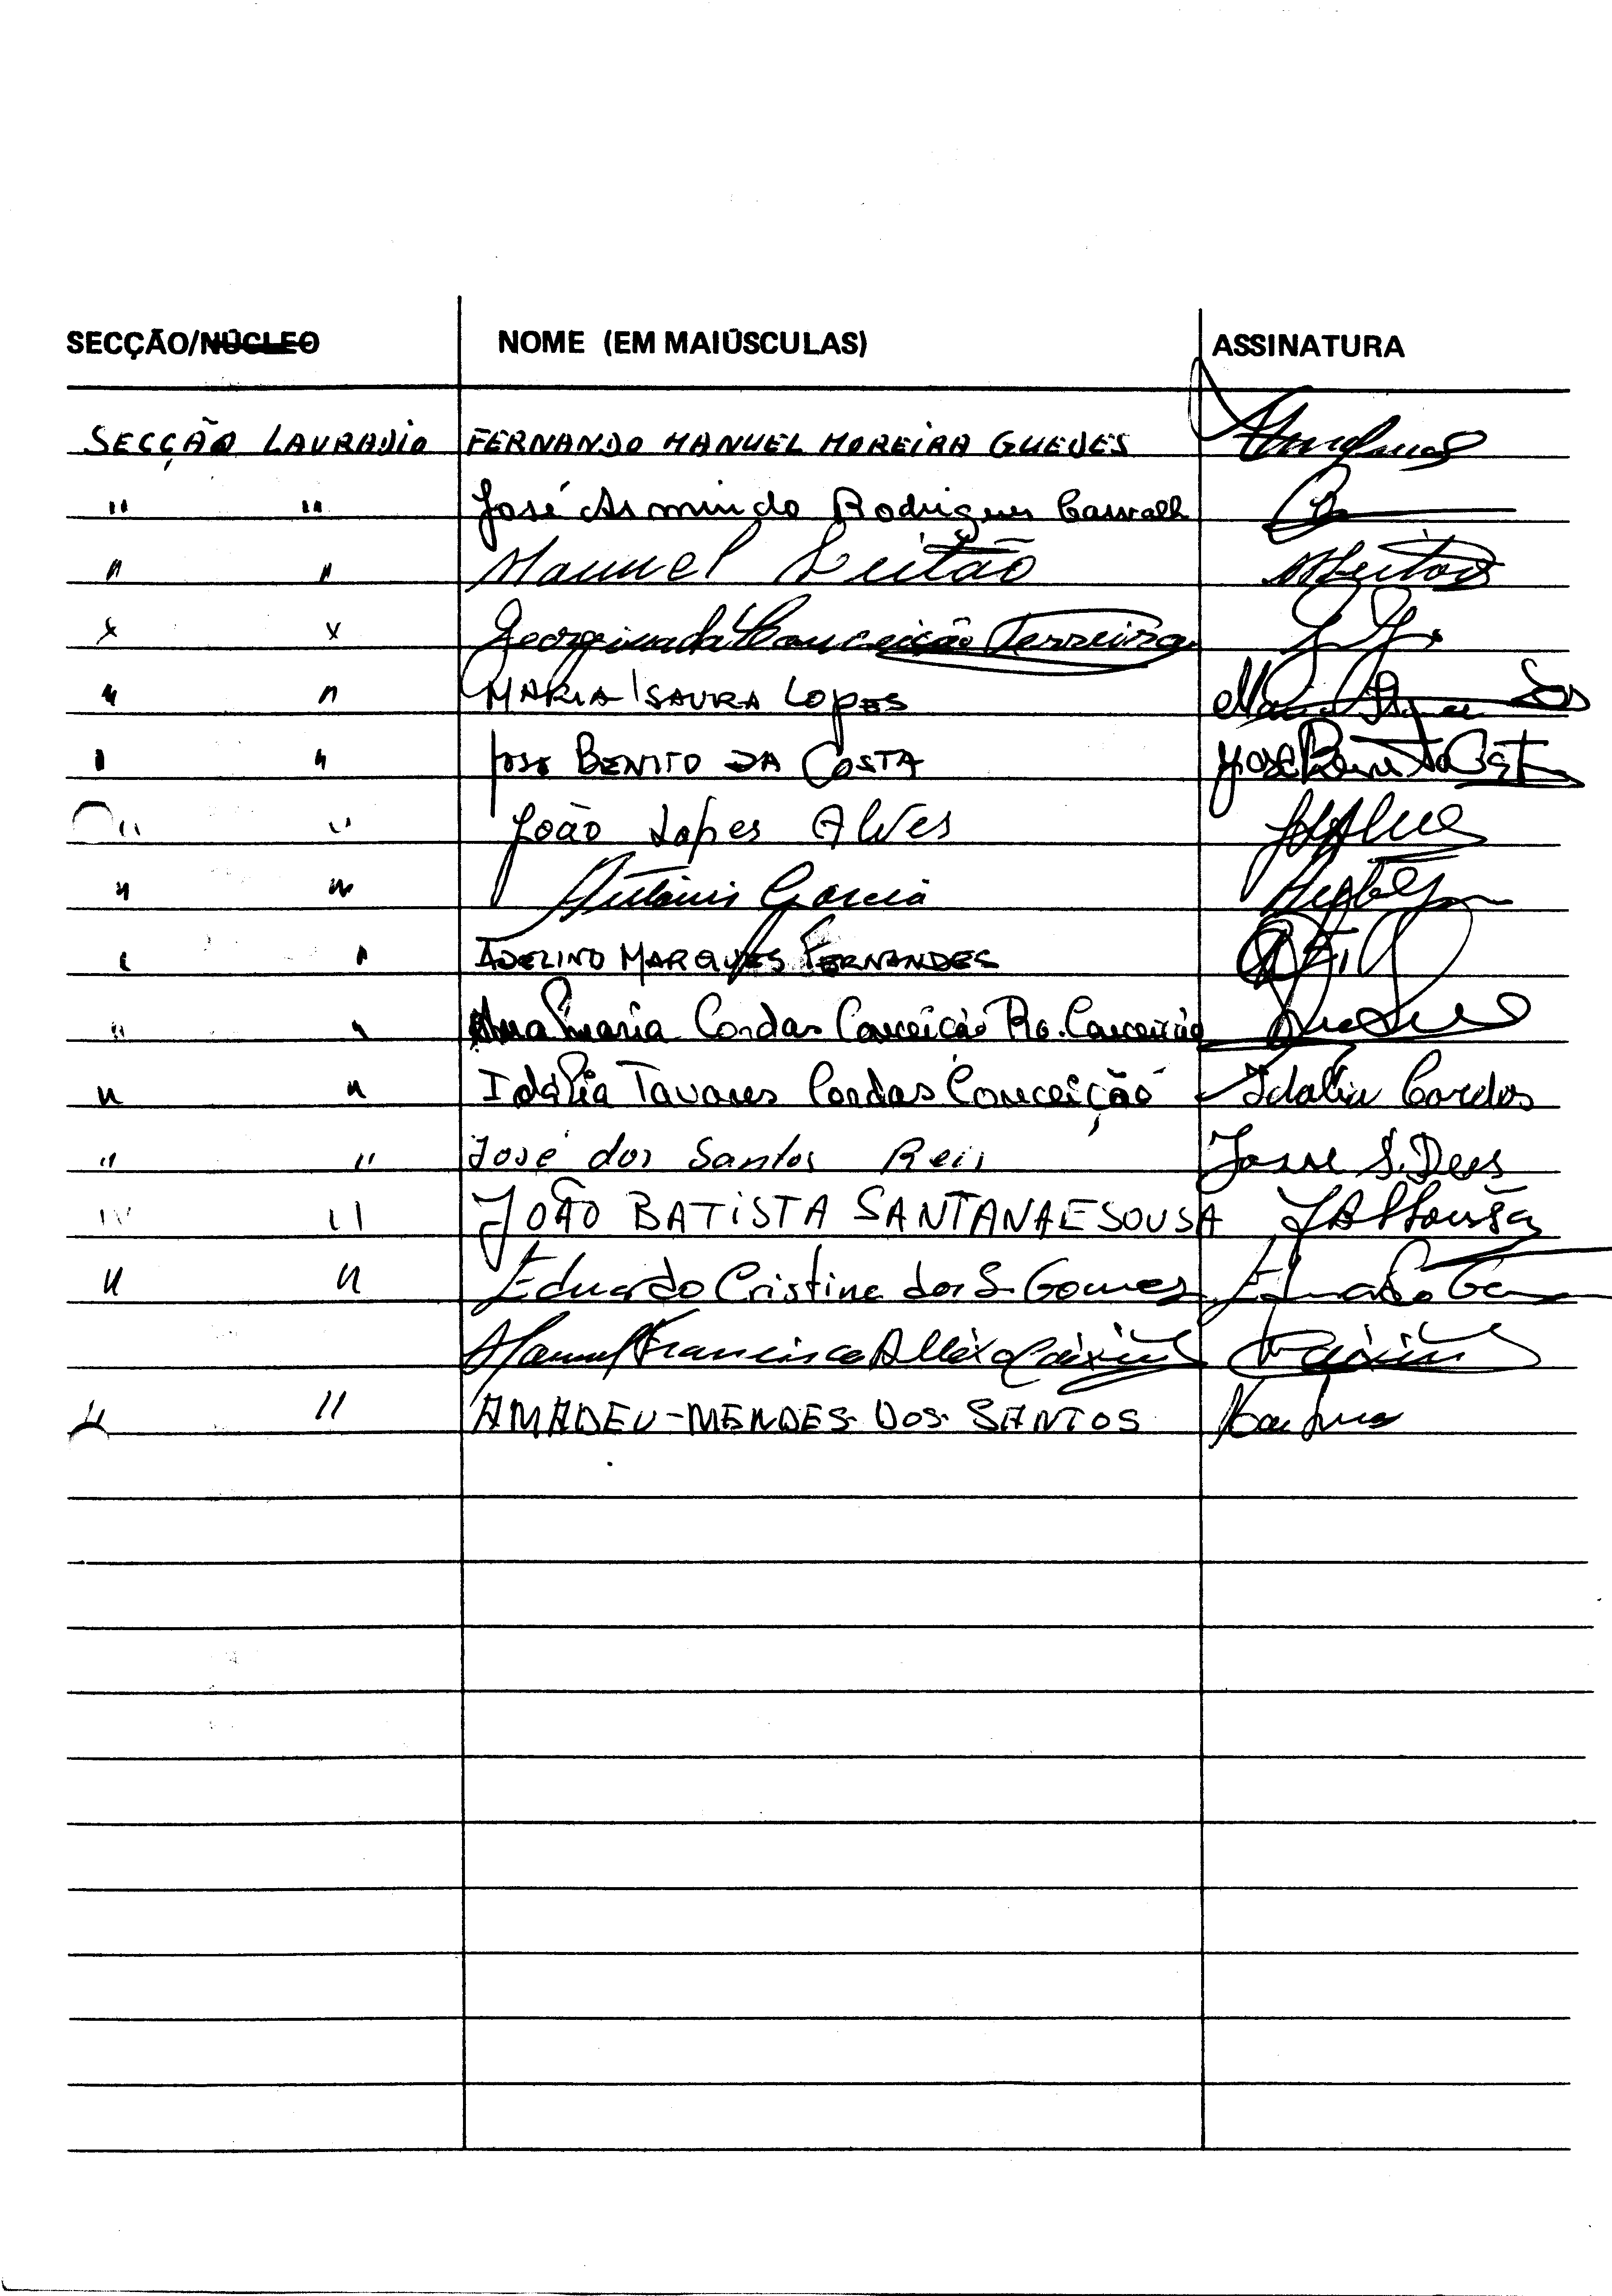 SECÇÃO/NÚCLEO NOME (EM MAIÚSCULAS) ASSINATURA
SECÇÃO LAVRADIO FERNANDO MANUEL MOREIRA GUEDES
" " José Armindo Rodrigues Carvalh
" " Manuel Leitão MLeitão
" " Georgina da Conceição Ferreira
" " MARIA ISAURA LOPES Maria
" " JOSE BENITO DA COSTA José Benito Costa
" " João Lopes Alves
" " António Garcia
" " ADELINO MARQUES FERNANDES
" " Ana Maria Cordas Conceição Ro. Conceição
" " Idália Tavares Cordas Conceição Idalia Cordas
" " José dos Santos Reis José S. Reis
" " JOÃO BATISTA SANTANA E SOUSA JBSSousa
" " Eduardo Cristino dos S. Gomes Eduardo
Manuel Francisco Paixão
" " AMADEU-MENDES-DOS-SANTOS